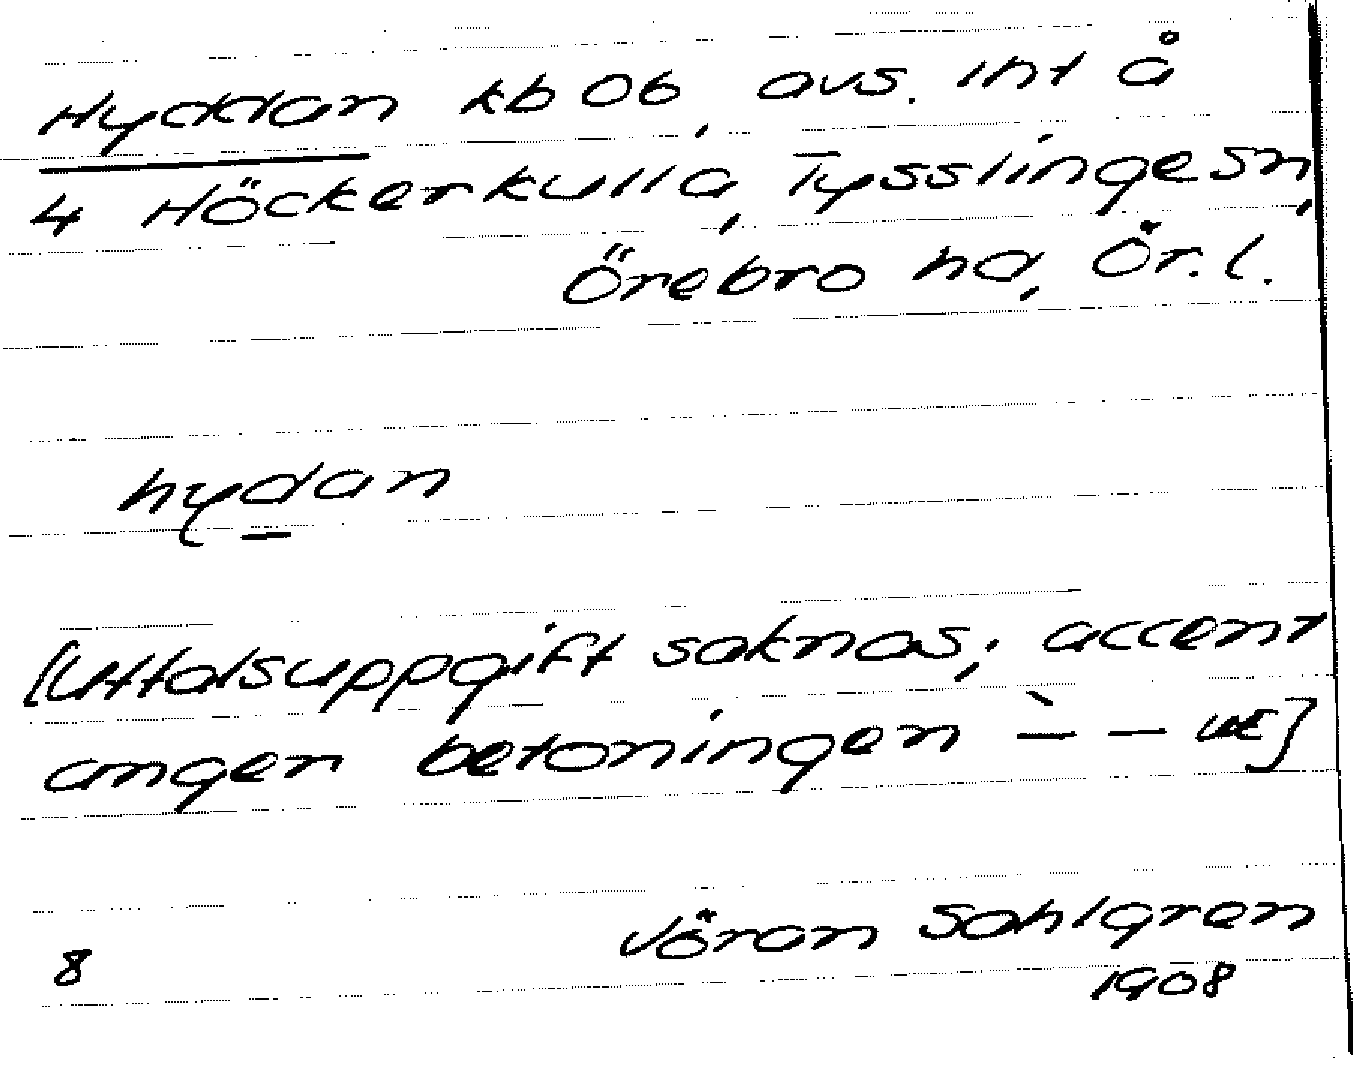 Hyddan kb 06, avs. int å
4 Höckerkulla, Tysslinge sn,
Örebro hd, Ör. l.
hydan
[Uttalsuppgift saknas; accent
anger betoningen ` – –]
Jöran Sahlgren
8
1908